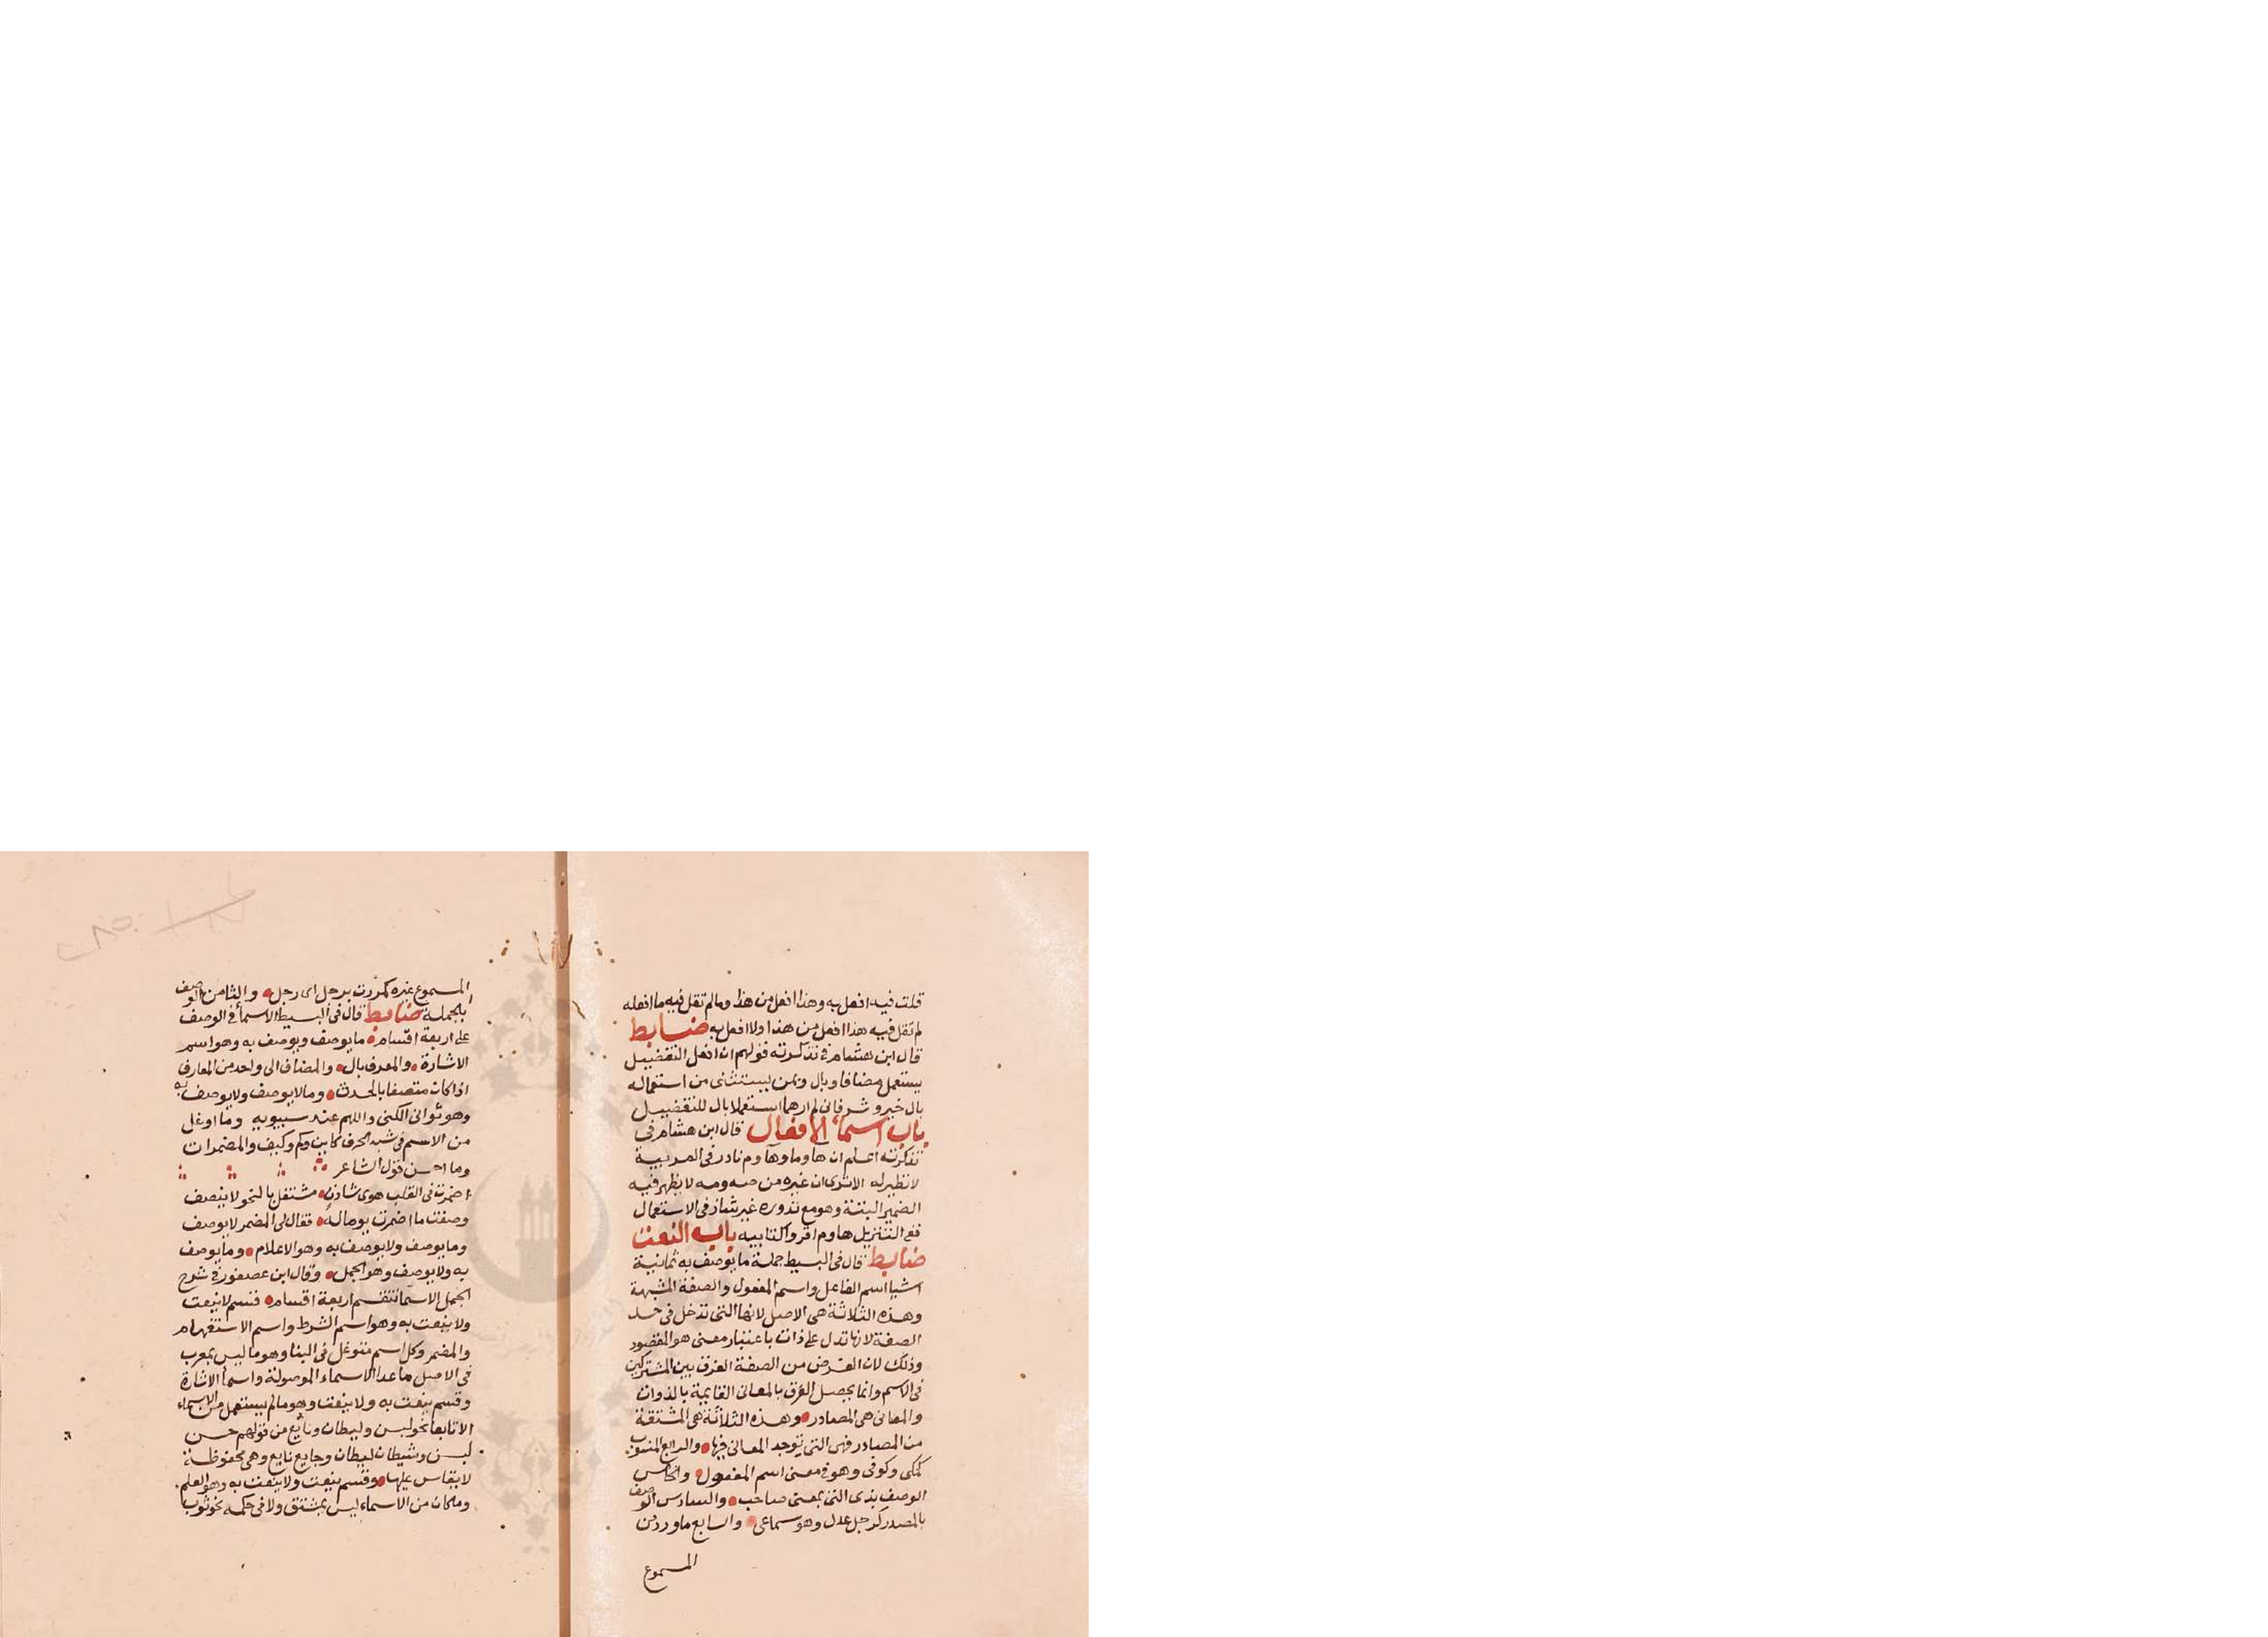 قلت فيه افعل به وهذا افعل من هذا وما لم تقل فيه ما افعله
لم تقل فيه هذا افعل من هذا ولا افعل به ضابط
قال ابن هشام في تذكرته قولهم ان افعل التفضيل
يستعمل مضافا وبال وبمن يستثنى من استعماله
بال خير وشر فاني لم ارهما استعملا بال للتفضيل
باب اسماء الافعال قال ابن هشام في
تذكرته اعلم ان هاوما وهاوم نادر في العربية
لا نظير له الا ترى ان غيره من صه ومه لا يظهر فيه
الضمير البتة وهو مع ندوره غير شاذ في الاستعمال
ففي التنزيل هاوم اقروا كتابيه باب النعت
ضابط قال في البسيط جملة ما يوصف به ثمانية
اشيا اسم الفاعل واسم المفعول والصفة المشبهة
وهذه الثلاثة هي الاصل لانها التي تدخل في حد
الصفة لانها تدل على ذات باعتبار معنى هو المقصود
وذلك لان الغرض من الصفة الفرق بين المشتركين
في الاسم وانما يحصل الفرق بالمعاني القايمة بالذوات
والمعاني هي المصادر وهذه الثلاثة هي المشتقة
من المصادر فهي التي توجد المعاني فيها والرابع المنسوب
كمكي وكوفي وهو في معنى اسم المفعول والخامس
الوصف بذي التي بمعنى صاحب والسادس الوصف
بالمصدر كرجل عدل وهو سماعي والسابع ما ورد من
المسموع
المسموع غيره كمررت برجل اي رجل والثامن الوصف
بالجملة ضابط قال في البسيط الاسما في الوصف
على اربعة اقسام ما يوصف ويوصف به وهو اسم
الاشارة والمعرف بال والمضاف الى واحد من المعارف
اذا كان متصفا بالحدث وما لا يوصف ولا يوصف به
وهو ثواني الكنى واللهم عند سيبويه وما اوغل
من الاسم في شبه الحرف كاين وكم وكيف والمضمرات
وما احسن قول الشاعر
اضمرت في القلب هوى شادن مشتغل بالنحو لا ينصف
وصفت ما اضمرت يوما له فقال لي المضمر لا يوصف
وما يوصف ولا يوصف به وهو الاعلام وما يوصف
به ولا يوصف وهو الجمل وقال ابن عصفور في شرح
الجمل الاسما تنقسم اربعة اقسام قسم لا ينعت
ولا ينعت به وهو اسم الشرط واسم الاستفهام
والمضمر وكل اسم متوغل في البنا وهو ما ليس بمعرب
في الاصل ما عدا الاسماء الموصولة واسما الاشارة
وقسم ينعت به ولا ينعت وهو ما لم يستعمل من الاسماء
الا تابعا نحو لبس وليطان ونايع من قولهم حسن
لبسن وشيطان ليطان وجايع نايع وهي محفوظة
لا يقاس عليها وقسم ينعت ولا ينعت به وهو العلم
وما كان من الاسماء ليس بمشتق ولا في حكمه نحو ثوب